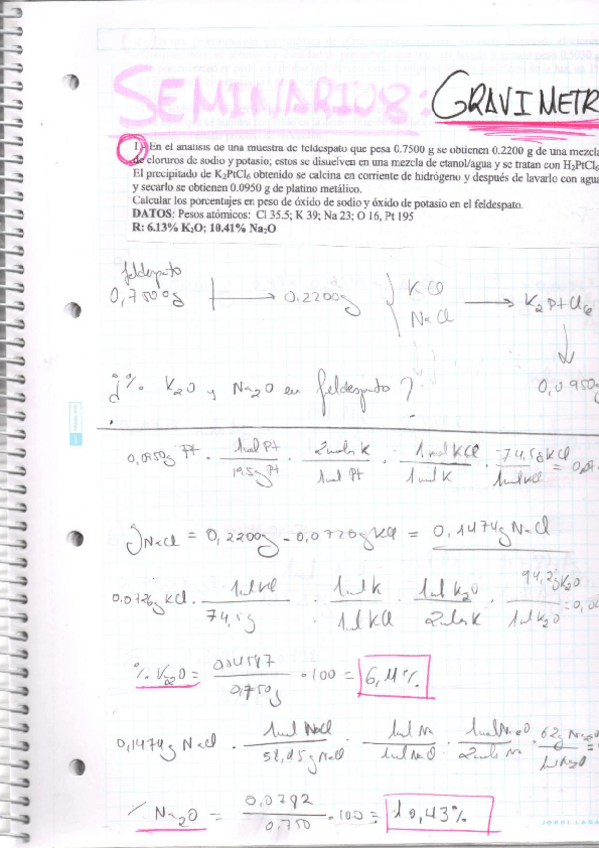 SEMINARIO 8: GRAVIMETR
1) En el analisis de una muestra de feldespato que pesa 0.7500 g se obtienen 0.2200 g de una mezcla
de cloruros de sodio y potasio; estos se disuelven en una mezcla de etanol/agua y se tratan con H₂PtCl₆
El precipitado de K₂PtCl₆ obtenido se calcina en corriente de hidrógeno y después de lavarlo con agua
y secarlo se obtienen 0.0950 g de platino metálico.
Calcular los porcentajes en peso de óxido de sodio y óxido de potasio en el feldespato.
DATOS: Pesos atómicos: Cl 35.5; K 39; Na 23; O 16, Pt 195
R: 6.13% K₂O; 10.41% Na₂O
feldespato
0,7500g → 0.2200g } KCl NaCl → K₂PtCl₆
↓
0,0950g
¿% K₂O y Na₂O en feldespato?
0,0950g Pt · 1mol Pt / 195g Pt · 2moles K / 1mol Pt · 1mol KCl / 1mol K · 74,5g KCl / 1mol KCl = 0,07
gNaCl = 0,2200g - 0,0726g KCl = 0,1474g NaCl
0,0726g KCl · 1mol KCl / 74,5g · 1mol K / 1mol KCl · 1mol K₂O / 2moles K · 94,2g K₂O / 1mol K₂O = 0,0
% K₂O = 0,04587 / 0,750g · 100 = 6,11%
0,1474g NaCl · 1mol NaCl / 58,45g NaCl · 1mol Na / 1mol NaCl · 1mol Na₂O / 2moles Na · 62g Na₂O / 1mol Na₂O =
% Na₂O = 0,0782 / 0.750 · 100 = 10,43%